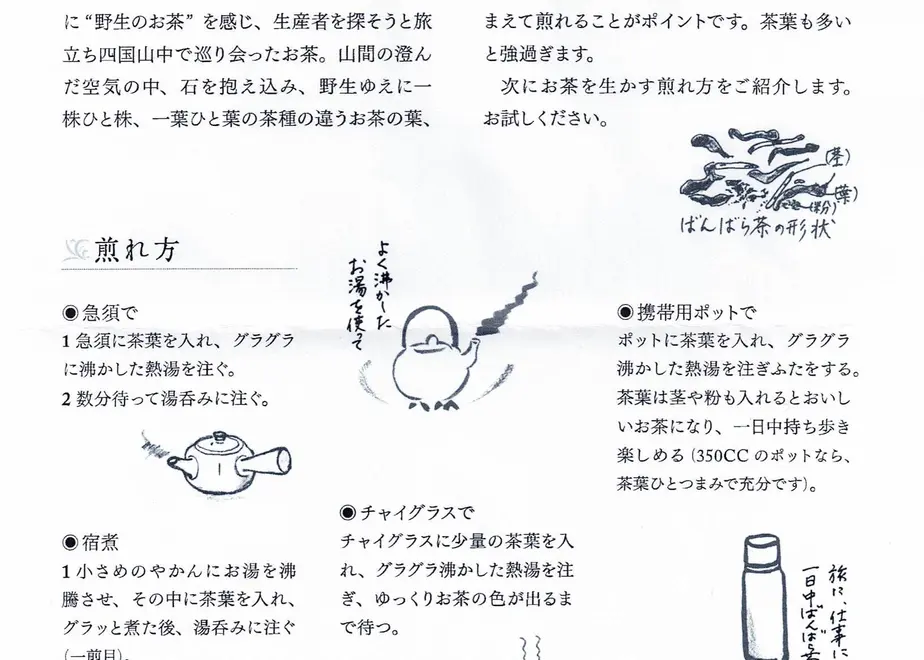 に“野生のお茶”を感じ、生産者を探そうと旅
立ち四国山中で巡り会ったお茶。山間の澄ん
だ空気の中、石を抱え込み、野生ゆえに一
株ひと株、一葉ひと葉の茶種の違うお茶の葉、
まえて煎れることがポイントです。茶葉も多い
と強過ぎます。
次にお茶を生かす煎れ方をご紹介します。
お試しください。
(茎)
(葉)
(粉)
ばんばら茶の形状
煎れ方
◉急須で
1 急須に茶葉を入れ、グラグラ
に沸かした熱湯を注ぐ。
2 数分待って湯呑みに注ぐ。
◉宿煮
1 小さめのやかんにお湯を沸
騰させ、その中に茶葉を入れ、
グラッと煮た後、湯呑みに注ぐ
(一煎目)。
よく沸かした
お湯を使って
◉チャイグラスで
チャイグラスに少量の茶葉を入
れ、グラグラ沸かした熱湯を注
ぎ、ゆっくりお茶の色が出るま
で待つ。
◉携帯用ポットで
ポットに茶葉を入れ、グラグラ
沸かした熱湯を注ぎふたをする。
茶葉は茎や粉も入れるとおいし
いお茶になり、一日中持ち歩き
楽しめる(350CCのポットなら、
茶葉ひとつまみで充分です)。
旅に、仕事に
一日中ばんばら茶